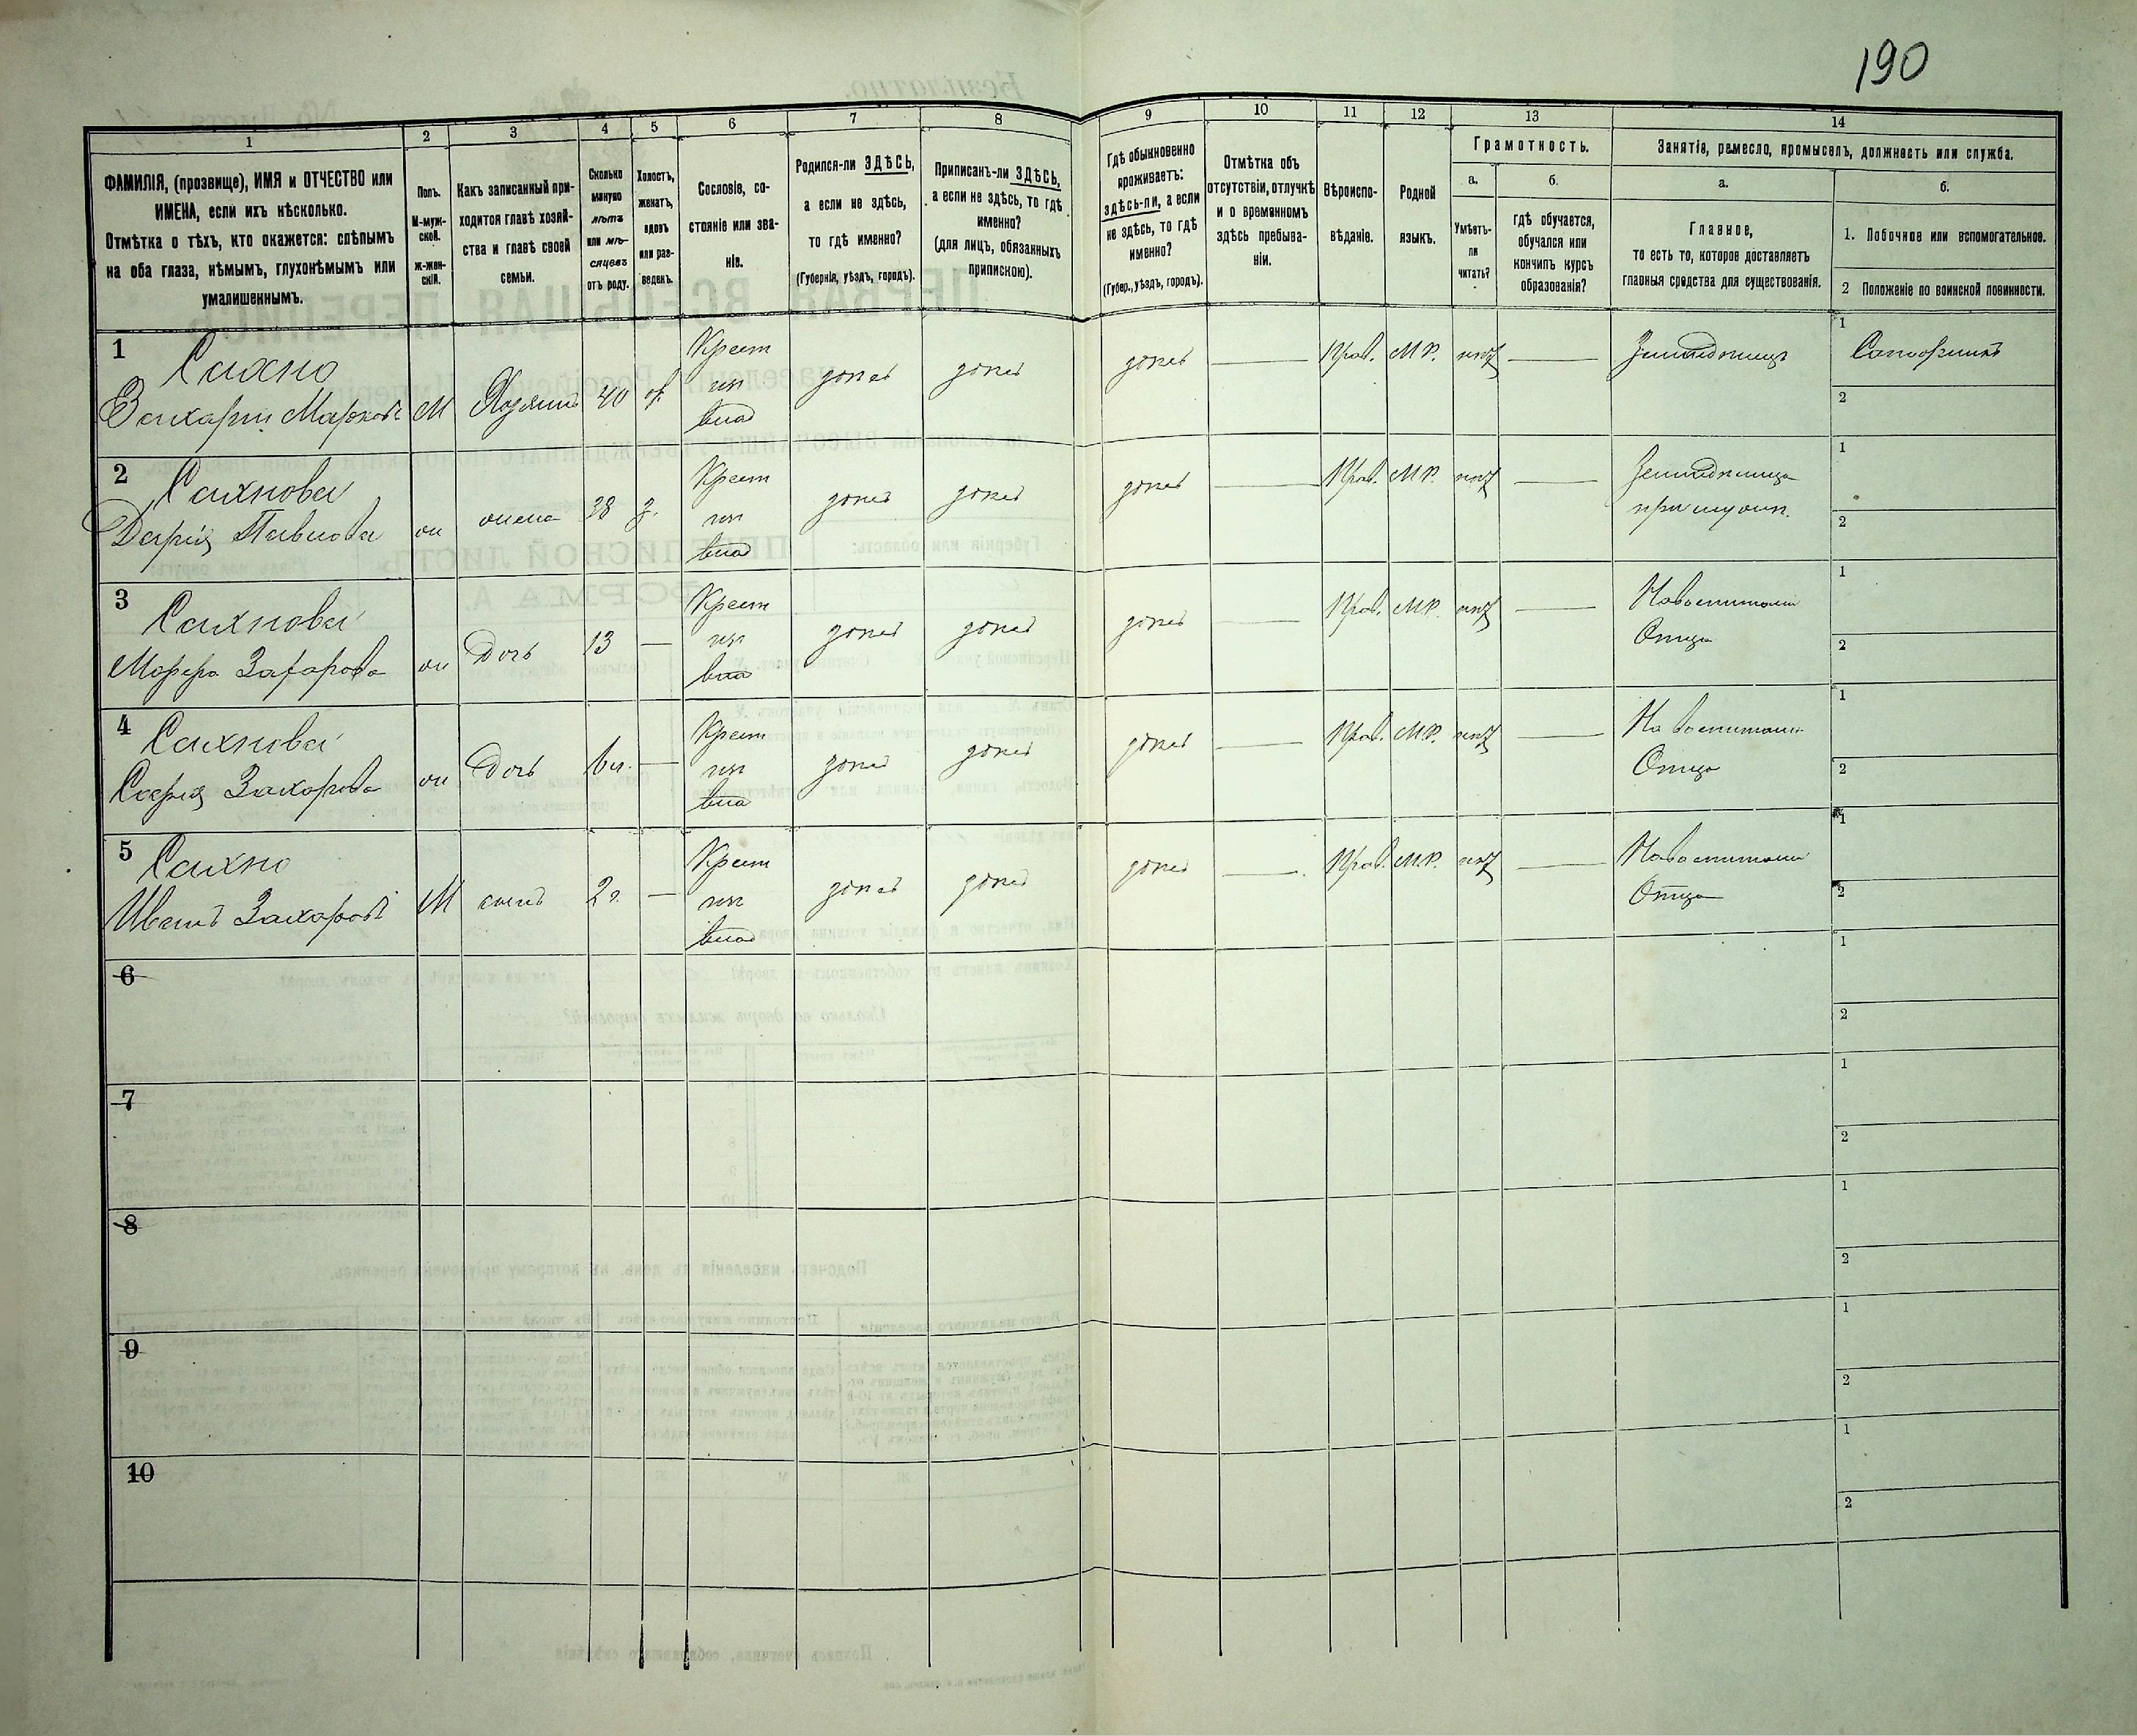 190
1
2
3
4
5
6
7
8
9
10
11
12
13
14
ФАМИЛІЯ, (прозвище), ИМЯ и ОТЧЕСТВО или
ИМЕНА, если ихъ нѣсколько.
Отмѣтка о тѣхъ, кто окажется: слѣпымъ
на оба глаза, нѣмымъ, глухонѣмымъ или
умалишеннымъ.
Полъ.
М-муж-
ской.
Ж-жен-
скій.
Какъ записанный при-
ходится главѣ хозяй-
ства и главѣ своей
семьи.
Сколько
минуло
лѣтъ
или мѣ-
сяцевъ
отъ роду.
Холостъ,
женатъ,
вдовъ
или раз-
веденъ.
Сословіе, со-
стояніе или зва-
ніе.
Родился-ли ЗДѢСЬ,
а если не здѣсь,
то гдѣ именно?
(Губернія, уѣздъ, городъ).
Приписанъ-ли ЗДѢСЬ,
а если не здѣсь, то гдѣ
именно?
(для лицъ, обязанныхъ
припискою).
Гдѣ обыкновенно
проживаетъ:
здѣсь-ли, а если
не здѣсь, то гдѣ
именно?
(Губер., уѣздъ, городъ).
Отмѣтка объ
отсутствіи, отлучкѣ
и о временномъ
здѣсь пребыва-
ніи.
Вѣроиспо-
вѣданіе.
Родной
языкъ.
Грамотность.
а.
Умѣетъ-
ли
читать?
б.
гдѣ обучается,
обучался или
кончилъ курсъ
образованія?
Занятія, ремесло, промыселъ, должность или служба.
а.
Главное,
то есть то, которое доставляетъ
главныя средства для существованія.
б.
1. Побочное или вспомогательное.
2 Положеніе по воинской повинности.
1
Сахно
Захарій Марковъ
М
Хозяинъ
40
Крест
здѣсь
здѣсь
здѣсь
Прав.
М.Р.
нѣтъ
1
2
2
Сахнова
Дарія Павлова
жена
38
з.
Крест
здѣсь
здѣсь
здѣсь
Прав.
М.Р.
нѣтъ
1
2
3
Сахнова
Дочь
13
Крест
здѣсь
здѣсь
здѣсь
Прав.
М.Р.
нѣтъ
Отца
1
2
4
Сахнова
Захарова
Дочь
Крест
здѣсь
здѣсь
здѣсь
Прав.
М.Р.
нѣтъ
Отца
1
2
5
Сахно
Иванъ Захаровъ
М
сынъ
2г.
Крест
здѣсь
здѣсь
здѣсь
Прав.
М.Р.
нѣтъ
Отца
1
2
6
1
2
7
1
2
8
1
2
9
1
2
10
1
2